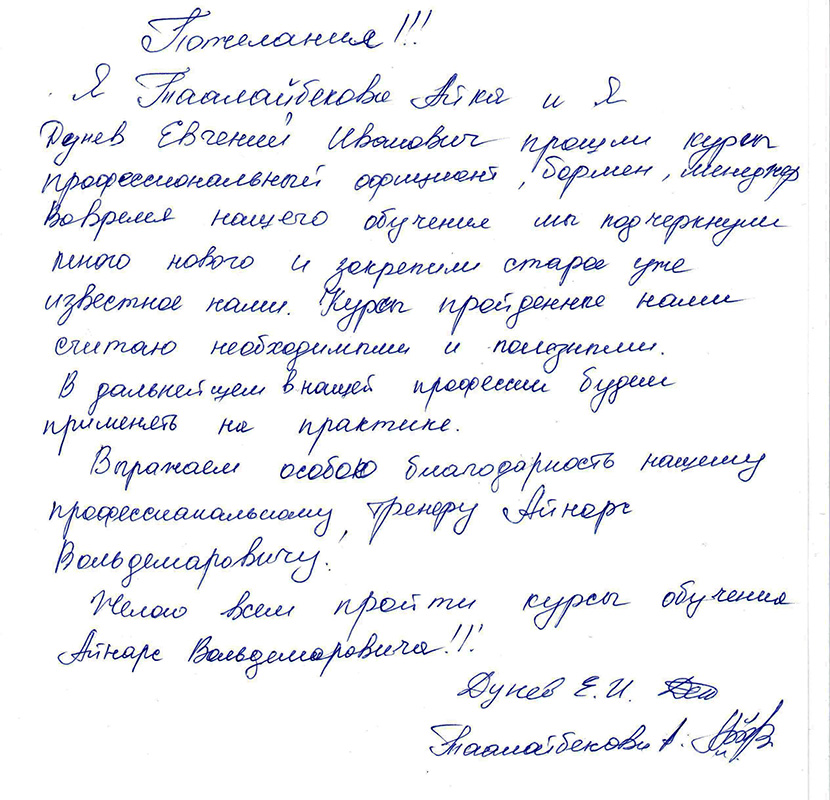 Пожелания!!!
Я Таалайбекова Айка и Я
Дунев Евгений Иванович прошли курсы
профессиональный официант, бармен, менеджер
Вовремя нашего обучения мы подчеркнули
много нового и закрепили старое уже
известное нами. Курсы пройденные нами
считаю необходимыми и полезными.
В дальнейшем в нашей профессии будем
применять на практике.
Выражаем особою благодарность нашему
профессианальному, тренеру Айнарс
Вольдемаровичу!
Желаю всем пройти курсы обучения
Айнарс Вольдемаровича!!!
Дунев Е.И.
Таалайбекова А.